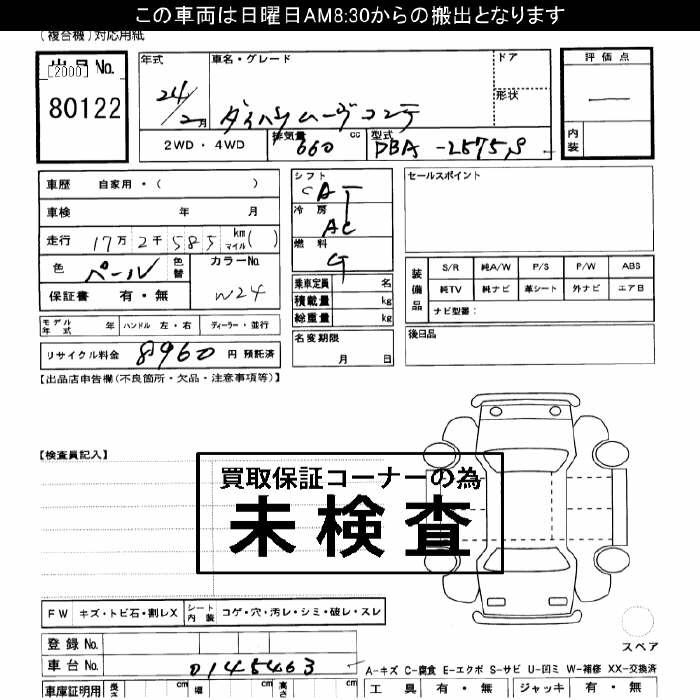 この車両は日曜日AM8:30からの搬出となります
(複合機)対応用紙
出品No.
[2000]
80122
年式
24/2月
車名・グレード
ダイハツムーヴコンテ
ドア
形状
評価点
―
内装
2WD・4WD
排気量
660
cc
型式
DBA-L575S
車歴 自家用・( )
車検 年 月
走行 17万2千585 km マイル( )
色 パール
色替
カラーNo.
W24
保証書 有・無
シフト
CAT
冷房
AC
燃料
G
乗車定員 名
積載量 kg
総重量 kg
セールスポイント
装備品
S/R 純A/W P/S P/W ABS
純TV 純ナビ 革シート 外ナビ エアB
ナビ型番:
モデル年式 年 ハンドル 左・右 ディーラー・並行
リサイクル料金 8960 円 預託済
名変期限
月 日
後日品
【出品店申告欄(不良箇所・欠品・注意事項等)】
【検査員記入】
買取保証コーナーの為
未検査
FW キズ・トビ石・割レX
シート内装 コゲ・穴・汚レ・シミ・破レ・スレ
スペア
登録No.
車台No. 0145463
A-キズ C-腐食 E-エクボ S-サビ U-凹ミ W-補修 XX-交換済
車庫証明用 長さ cm 幅 cm 高さ cm
工具 有・無 ジャッキ 有・無